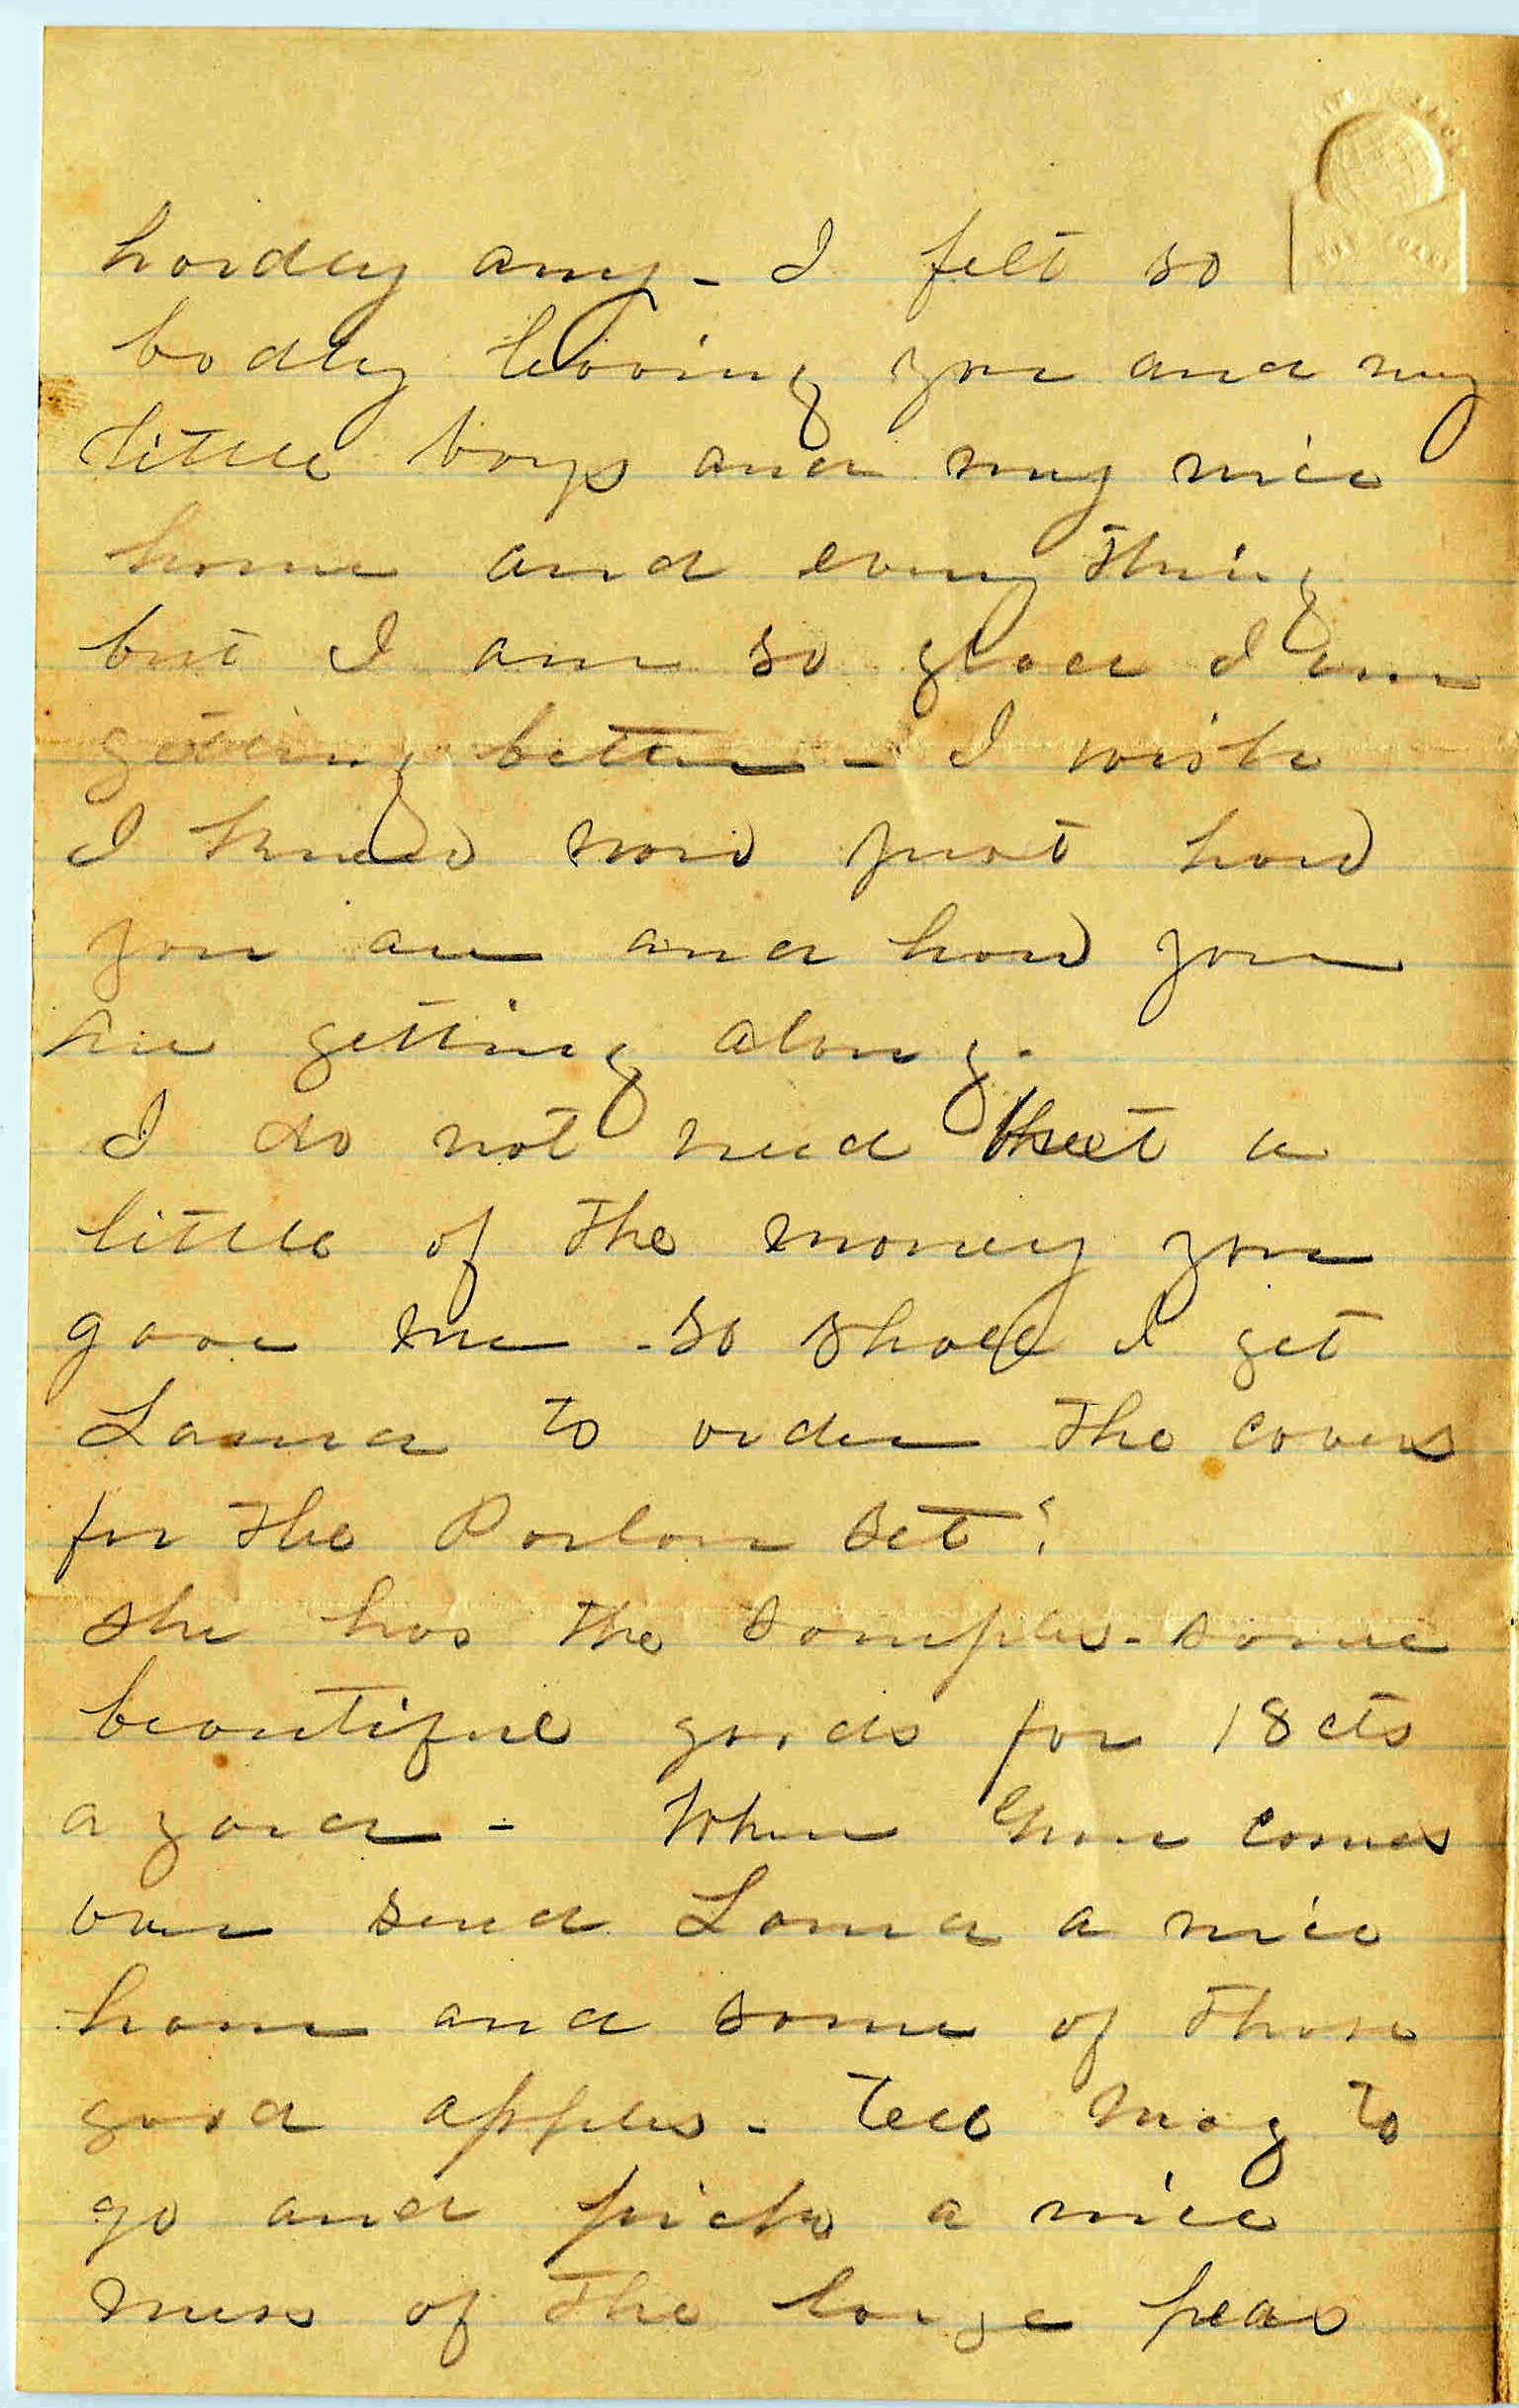 hardly any - I felt so
badly leaving you and my
little boys and my nice
home and every thing
but I am so glad I am
getting better - I wish
I knew now just how
you are and how you
are getting along.
I do not need but a
little of the money you
gave me - so shall I get
Laura to order the covers
for the Parlor set?
she has the samples - some
beautiful goods for 18 cts
a yard - When comes
over send Laura a nice
ham and some of those
good apples - tell Mag to
go and pick a nice
mess of the large peas